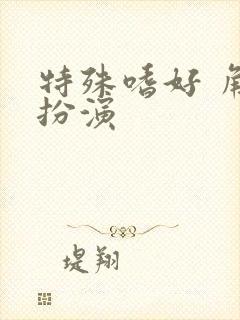 特殊嗜好 角
扮演
堤翔